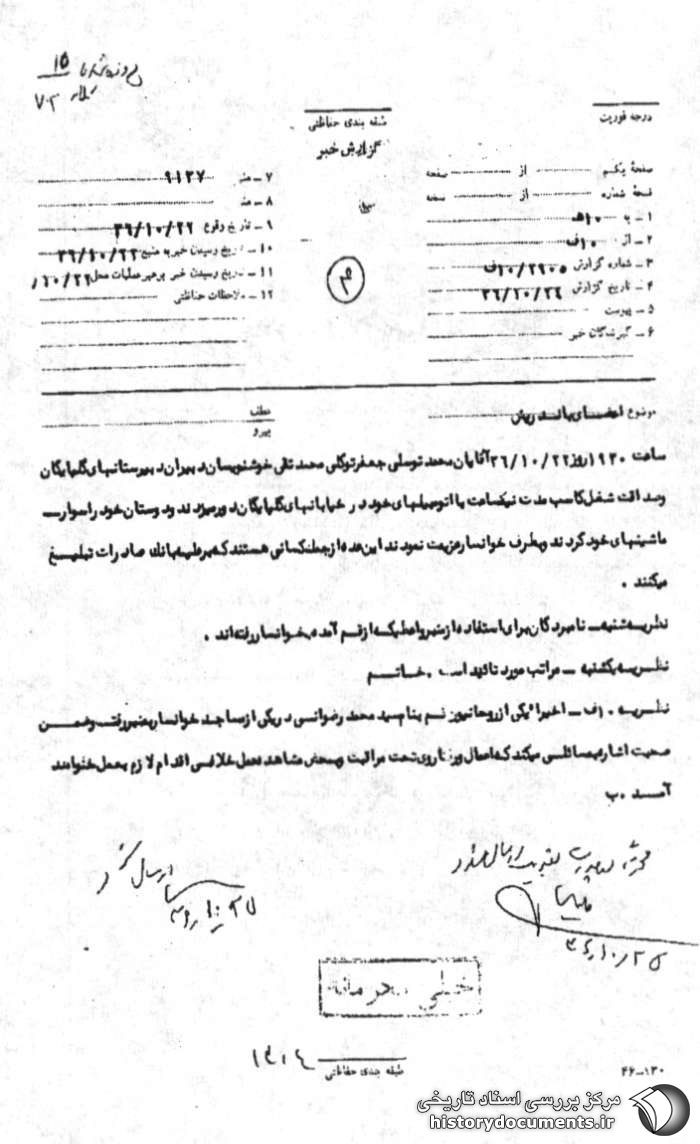 ۱۵
درجه فوریت
طبقه بندی حفاظتی
گزارش خبر
صفحه یکم از صفحه
نسخه شماره از نسخه
۱ـ به ۱۰هـ
۲ـ از ۱۰ف
۳ـ شماره گزارش ۱۰/۲۹۰۵ف
۴ـ تاریخ گزارش ۳۶/۱۰/۲۴
۵ـ پیوست
۶ـ گیرندگان خبر
۷ـ منبع ۹۱۲۷
۸ـ منبع
۹ـ تاریخ وقوع ۳۶/۱۰/۲۲
۱۰ـ تاریخ رسیدن خبر به منبع ۳۶/۱۰/۲۲
۱۱ـ تاریخ رسیدن خبر برهبر عملیات محل ۱۰/۲۲
۱۲ـ ملاحظات حفاظتی
موضوع
عطف
پیرو
ساعت ۱۹۳۰ روز ۳۶/۱۰/۲۲ آقایان محمد توسلی جعفر توکلی محمد تقی خوشنویسان دبیران دبیرستانهای گلپایگان
و صداقت شغل کاسب مدت نیمساعت با اتومبیلهای خود در خیابانهای گلپایگان دور میزدند و دوستان خود را سوار
ماشینهای خود کردند و بطرف خوانسار عزیمت نمودند این عده از جمله کسانی هستند که بر علیه بانک صادرات تبلیغ
میکنند .
نظریه شنبه ـ نامبردگان برای استفاده از منبر واعظیکه از قم آمده بخوانسار رفته‌اند .
نظریه یکشنبه ـ مراتب مورد تائید است . خاتم
نظریه ۱۰ف ـ اخیرا یکی از روحانیون قم بنام سید محمد رضوانی در یکی از مساجد خوانسار بمنبر رفته و ضمن
صحبت اشاره بمسائلی میکند که اعمال و رفتار وی تحت مراقبت و بمحض مشاهده عمل خلافی اقدام لازم بعمل خواهد
آمد . ب
۳۶/۱۰/۲۵
ارسال شود
خیلی محرمانه
طبقه بندی حفاظتی
۱۳۰ـ۴۶
مرکز بررسی اسناد تاریخی
historydocuments.ir